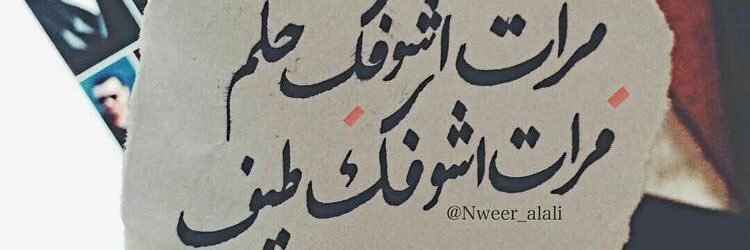 مرات اشوفك حلم
مرات اشوفك طيف
@Nweer_alali